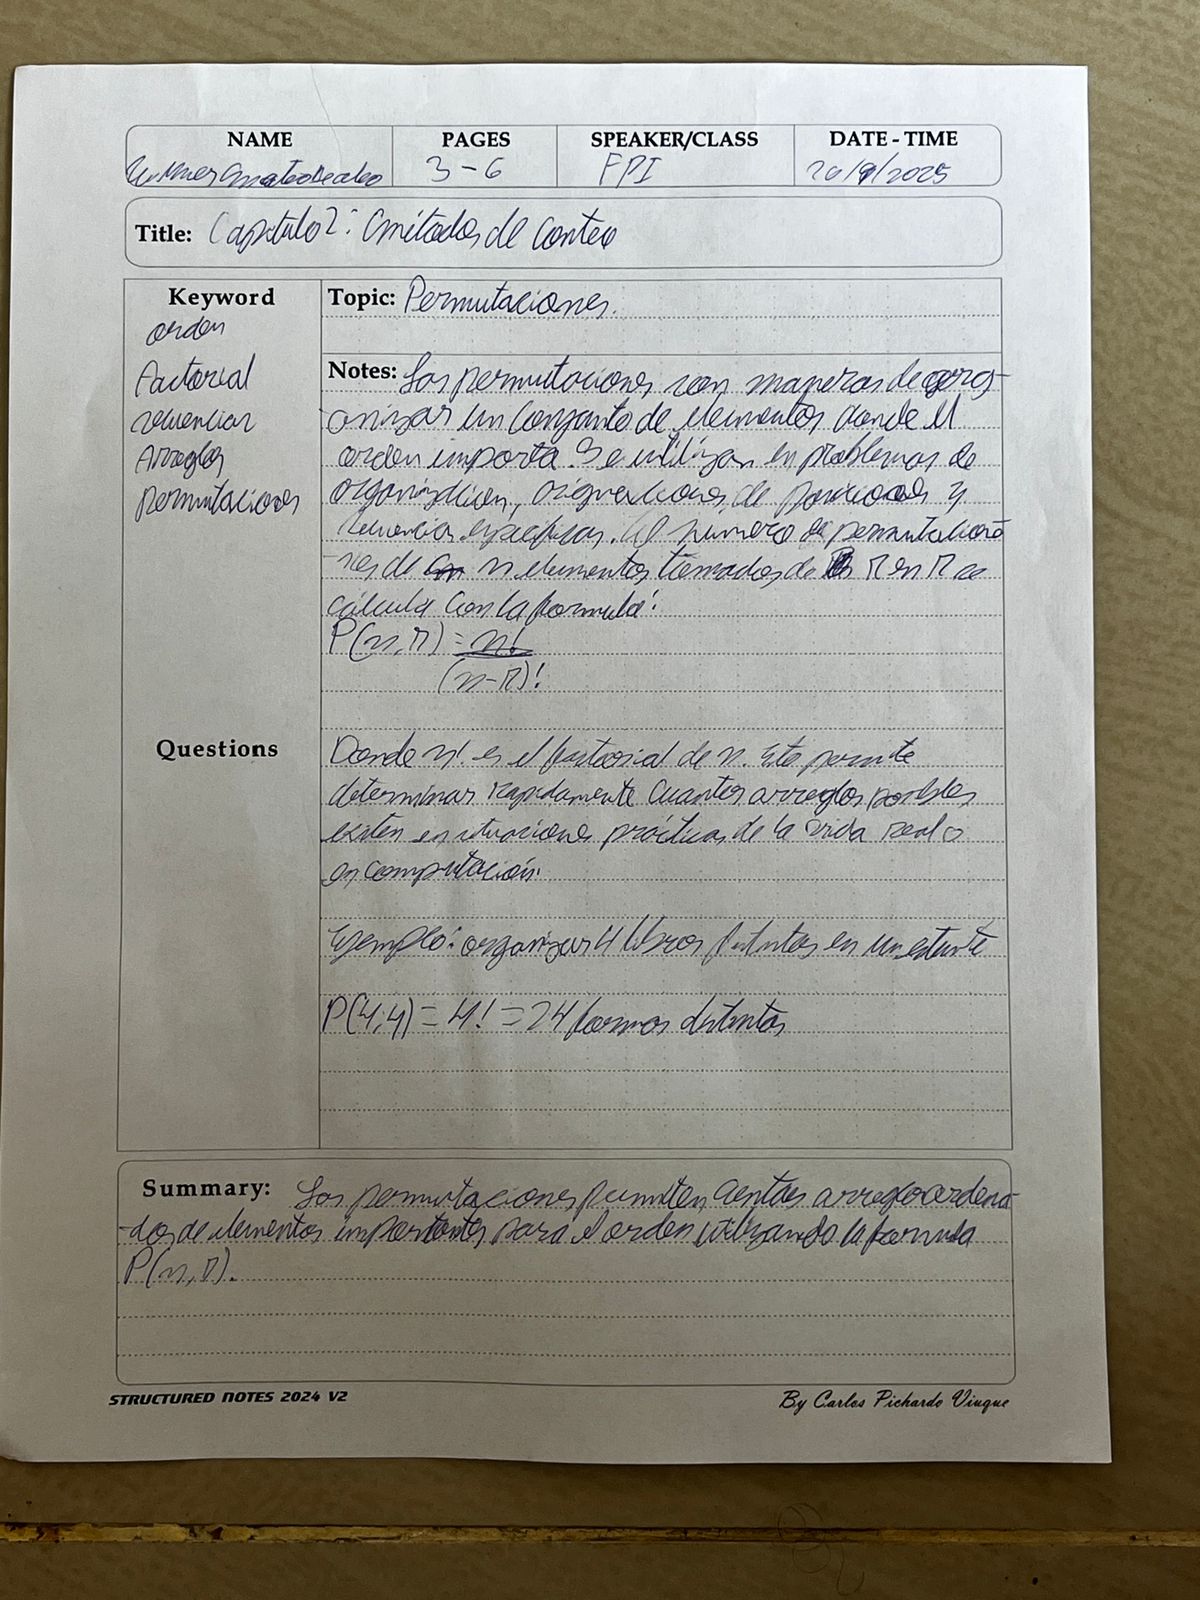 NAME PAGES SPEAKER/CLASS DATE - TIME
3-6 FPI 26/9/2025
Title: Capitulo 2: métodos de conteo
Keyword
orden
Factorial
secuencias
Arreglos
permutaciones
Topic: Permutaciones.
Notes: Las permutaciones son maneras de org-
anizar un conjunto de elementos donde el
orden importa. Se utilizan en problemas de
organización, asignaciones de posiciones y
secuencias específicas. El número de permutacio
-nes de n elementos tomados de r en r se
cálcula con la formula:
P(n,r) = n!
(n-r)!
Questions
Donde n! es el factorial de n. Esto permite
determinar rapidamente cuantos arreglos posibles
existen en situaciones prácticas de la vida real o
en computación.
Ejemplo: organizar 4 libros distintos en un estante
P(4,4) = 4! = 24 formas distintas
Summary: Las permutaciones permiten contar arreglo ordena
-dos de elementos importantes para el orden utilizando la formula
P(n,r).
STRUCTURED NOTES 2024 V2
By Carlos Pichardo Viuque